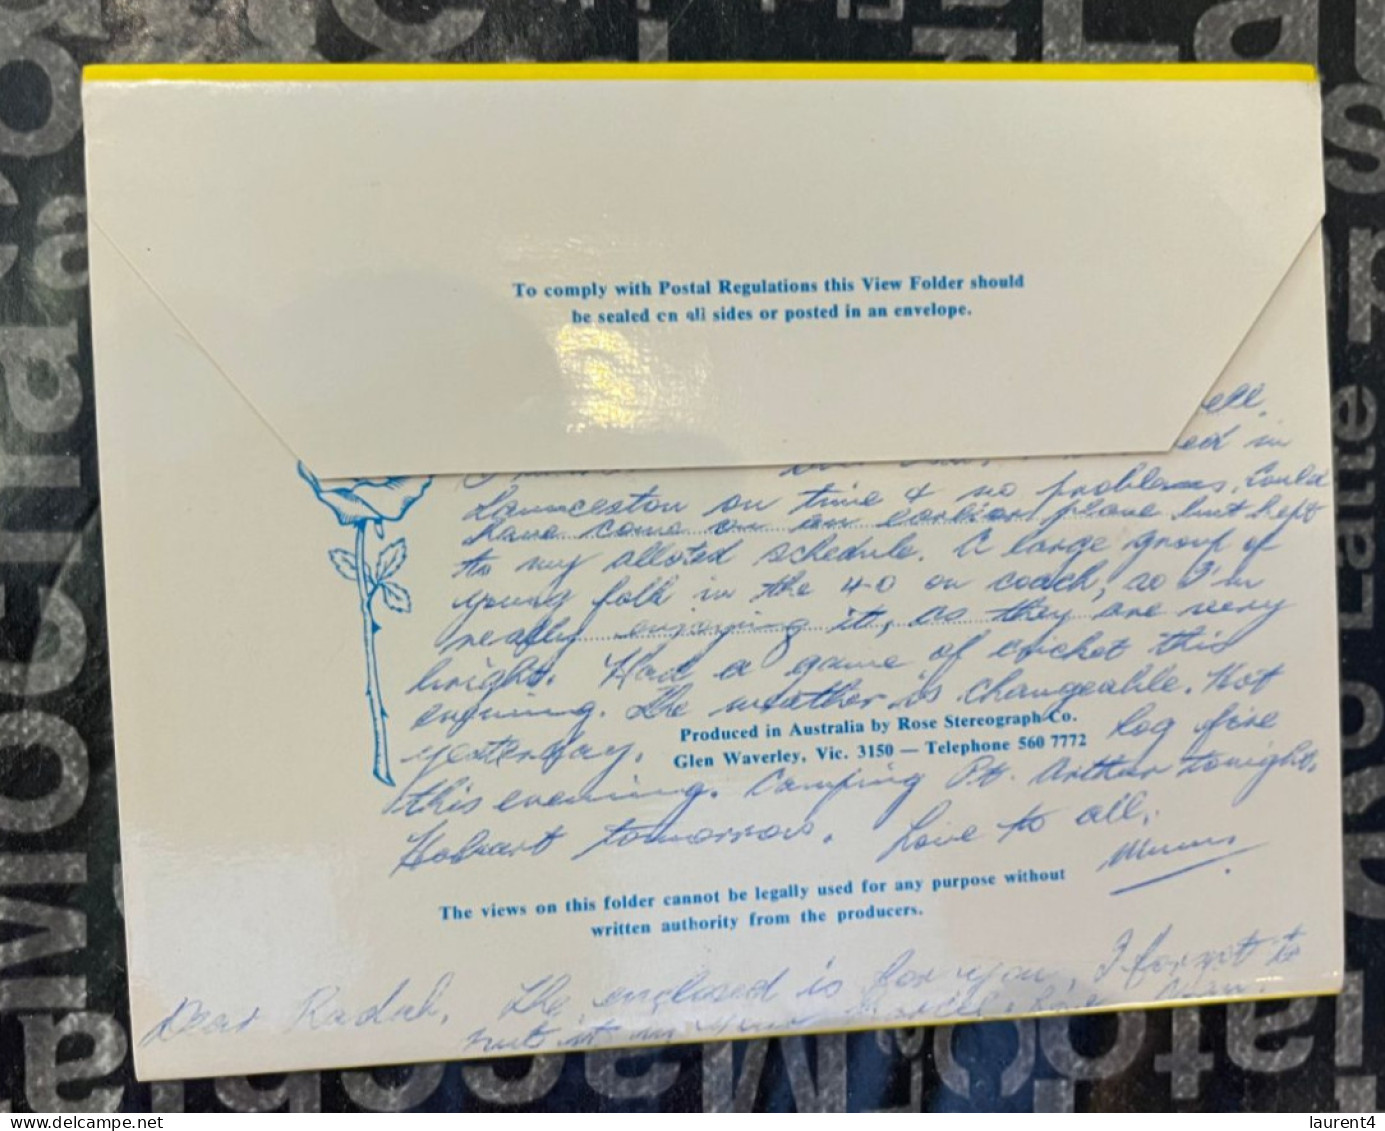 To comply with Postal Regulations this View Folder should
be sealed on all sides or posted in an envelope.
in
Launceston on time & no problems. Could
have come on an earlier plane but kept
to my alloted schedule. A large group of
young folk in the 40 on coach, so I'm
really enjoying it, as they are very
bright. Had a game of cricket this
evening. The weather is changeable. Hot
yesterday. Log fire
Produced in Australia by Rose Stereograph Co.
Glen Waverley, Vic. 3150 — Telephone 560 7772
this evening. Camping Pt. Arthur tonight.
Hobart tomorrow. Love to all.
Mum
The views on this folder cannot be legally used for any purpose without
written authority from the producers.
Dear Radah. The enclosed is for you, I forgot to
put it in your
laurent4